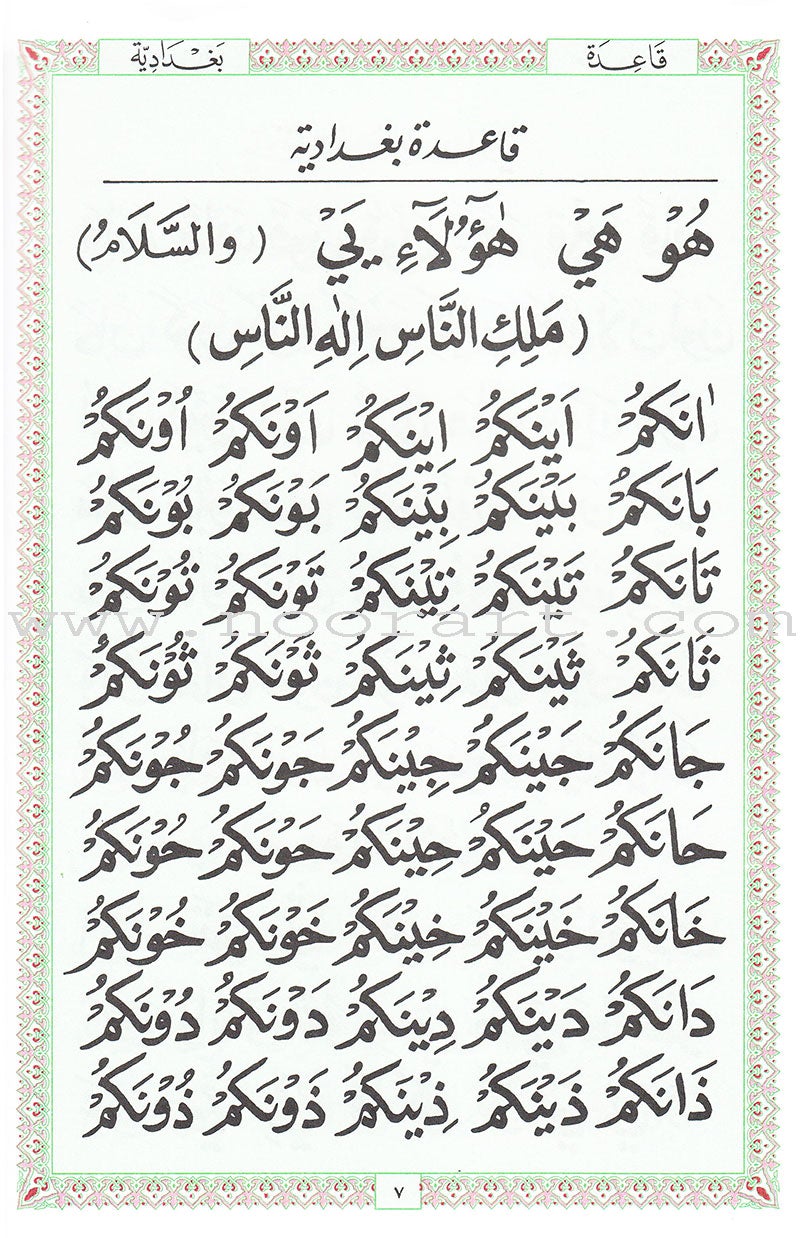 قَاعِدَة بَغْدَادِيّة
قاعدة بغدادية
هُوْ هَيْ هٰٓؤُلَآءِ يَيْ (والسَّلَامُ)
(مَلِكِ النَّاسِ اِلٰهِ النَّاسِ)
اٰنَكُمْ اَيْنَكُمْ اِيْنَكُمْ اَوْنَكُمْ اُوْنَكُمْ
بَانَكُمْ بَيْنَكُمْ بِيْنَكُمْ بَوْنَكُمْ بُوْنَكُمْ
تَانَكُمْ تَيْنَكُمْ تِيْنَكُمْ تَوْنَكُمْ تُوْنَكُمْ
www.noorart.com
ثَانَكُمْ ثَيْنَكُمْ ثِيْنَكُمْ ثَوْنَكُمْ ثُوْنَكُمْ
جَانَكُمْ جَيْنَكُمْ جِيْنَكُمْ جَوْنَكُمْ جُوْنَكُمْ
حَانَكُمْ حَيْنَكُمْ حِيْنَكُمْ حَوْنَكُمْ حُوْنَكُمْ
خَانَكُمْ خَيْنَكُمْ خِيْنَكُمْ خَوْنَكُمْ خُوْنَكُمْ
دَانَكُمْ دَيْنَكُمْ دِيْنَكُمْ دَوْنَكُمْ دُوْنَكُمْ
ذَانَكُمْ ذَيْنَكُمْ ذِيْنَكُمْ ذَوْنَكُمْ ذُوْنَكُمْ
٧